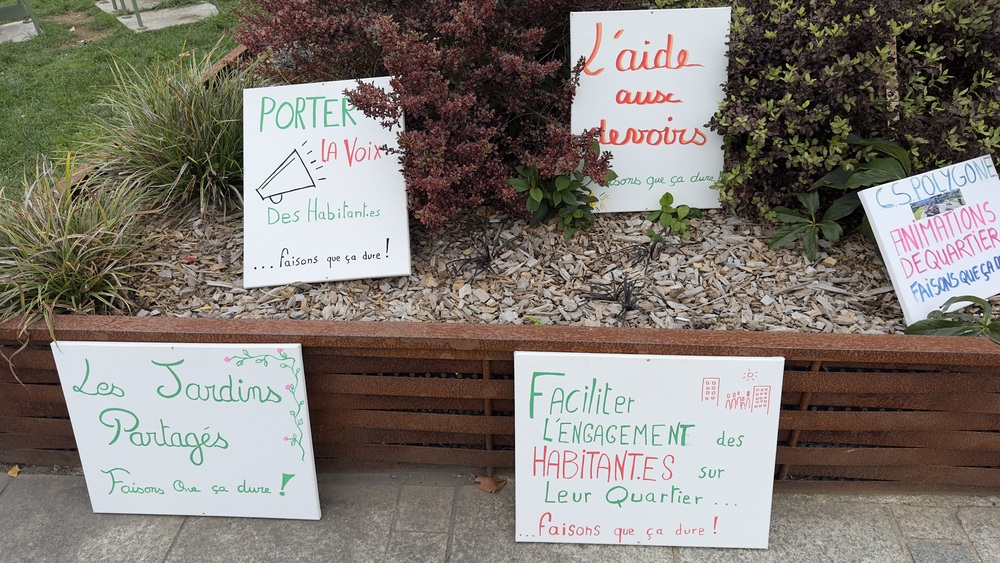 PORTER
LA VOiX
Des Habitant.es
... faisons que ça dure !
L'aide
aux
devoirs
faisons que ça dure
CS POLYGONE
ANIMATIONS
DE QUARTIER
FAISONS QUE ÇA
Les Jardins
Partagés
Faisons Que ça dure !
FACiliTER
L'ENGAGEMENT des
HABiTANT.ES sur
Leur Quartier ...
... faisons que ça dure !